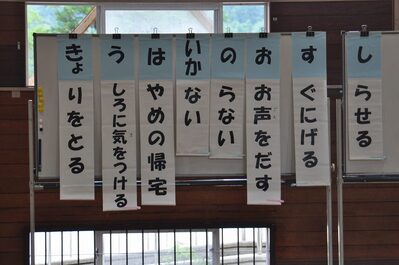 きょりをとる
うしろに気をつける
はやめの帰宅
いかない
のらない
おお声をだす
すぐにげる
しらせる